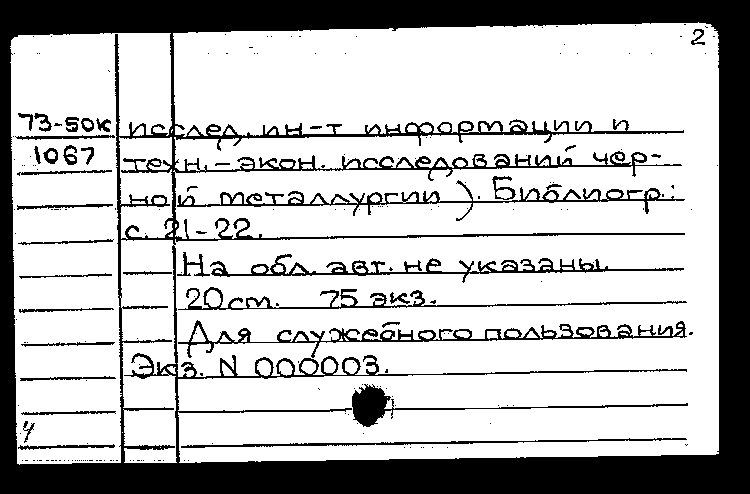 2
73-50к исслед. ин-т информации и
1067 техн.-экон. исследований чер-
ной металлургии). Библиогр.:
с. 21-22.
На обл. авт. не указаны.
20 cm. 75 экз.
Для служебного пользования.
Экз. N 000003.